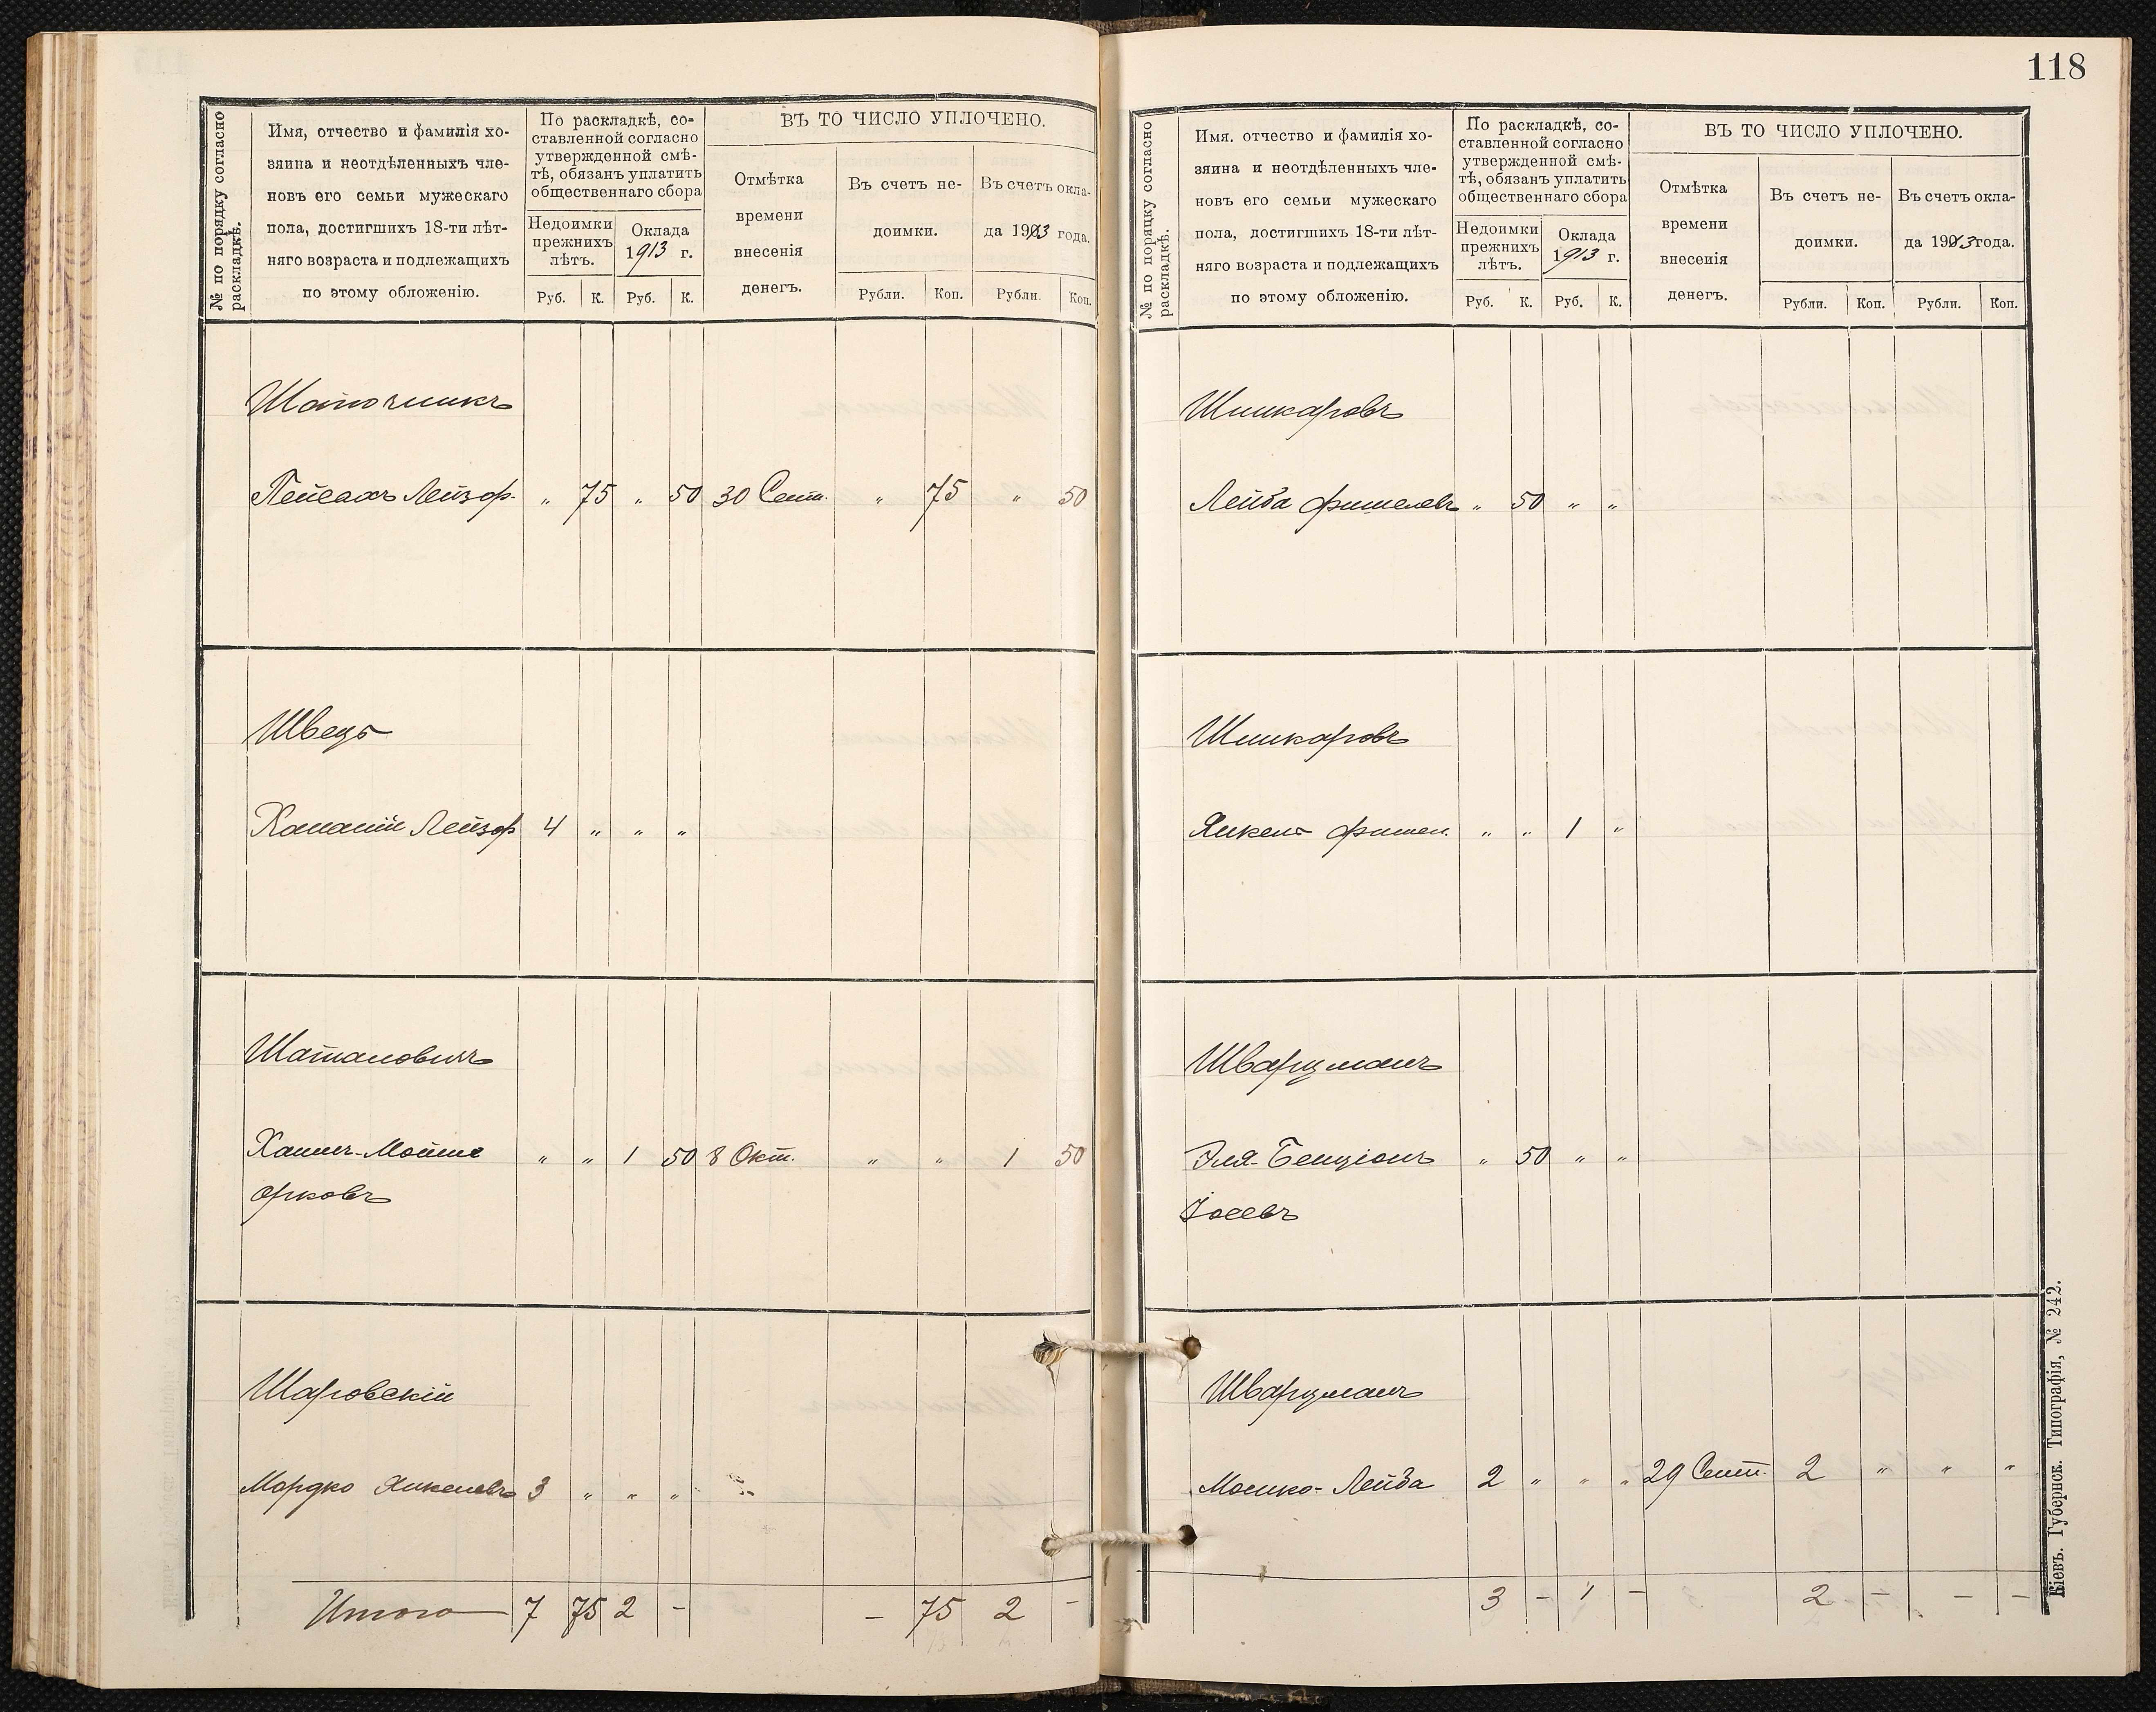 118
№ по порядку согласно
раскладкѣ.
Имя, отчество и фамилія хо-
зяина и неотдѣленныхъ чле-
новъ его семьи мужескаго
пола, достигшихъ 18-ти лѣт-
няго возраста и подлежащихъ
по этому обложенію.
По раскладкѣ, со-
ставленной согласно
утвержденной смѣ-
тѣ, обязанъ уплатить
общественнаго сбора
Недоимки
прежнихъ
лѣтъ.
Оклада
1913 г.
Руб. К. Руб. К.
ВЪ ТО ЧИСЛО УПЛОЧЕНО.
Отмѣтка
времени
внесенія
денегъ.
Въ счетъ не-
доимки.
Въ счетъ окла-
да 1913 года.
Рубли. Коп. Рубли. Коп.
Шапочникъ
Пейсахъ Лейзор. " 75 " 50 30 Сент. " 75 " 50
Шведъ
Хананій Лейзор 4 " " "
Шатановичъ
Хаимъ-Мойше " " 1 50 8 Окт. " " 1 50
Орковъ
Шаровскій
Мордко Янкелевъ 3 " " "
Итого 7 75 2 - - 75 2 -
№ по порядку согласно
раскладкѣ.
Имя. отчество и фамилія хо-
зяина и неотдѣленныхъ чле-
новъ его семьи мужескаго
пола, достигшихъ 18-ти лѣт-
няго возраста и подлежащихъ
по этому обложенію.
По раскладкѣ, со-
ставленной согласно
утвержденной смѣ-
тѣ, обязанъ уплатить
общественнаго сбора
Недоимки
прежнихъ
лѣтъ.
Оклада
1913 г.
Руб. К. Руб. К.
ВЪ ТО ЧИСЛО УПЛОЧЕНО.
Отмѣтка
времени
внесенія
денегъ.
Въ счетъ не-
доимки.
Въ счетъ окла-
да 1913 года.
Рубли. Коп. Рубли. Коп.
Шишкаровъ
Лейба Фишелевъ " 50 " "
Шишкаровъ
Янкель Фишел. " " 1 "
Шварцманъ
Эля-Бенціонъ " 50 " "
Іосевъ
Шварцманъ
Мошко-Лейба 2 " " " 29 Сент. 2 " " "
3 - 1 - 2 - - -
Кіевъ. Губернск. Типографія, № 242.